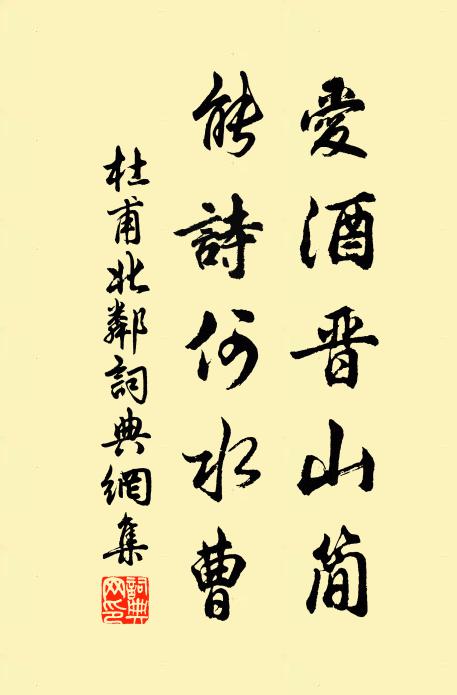 愛酒晋山簡
能詩何水曹
杜甫北鄰詞典網集
詞典網印